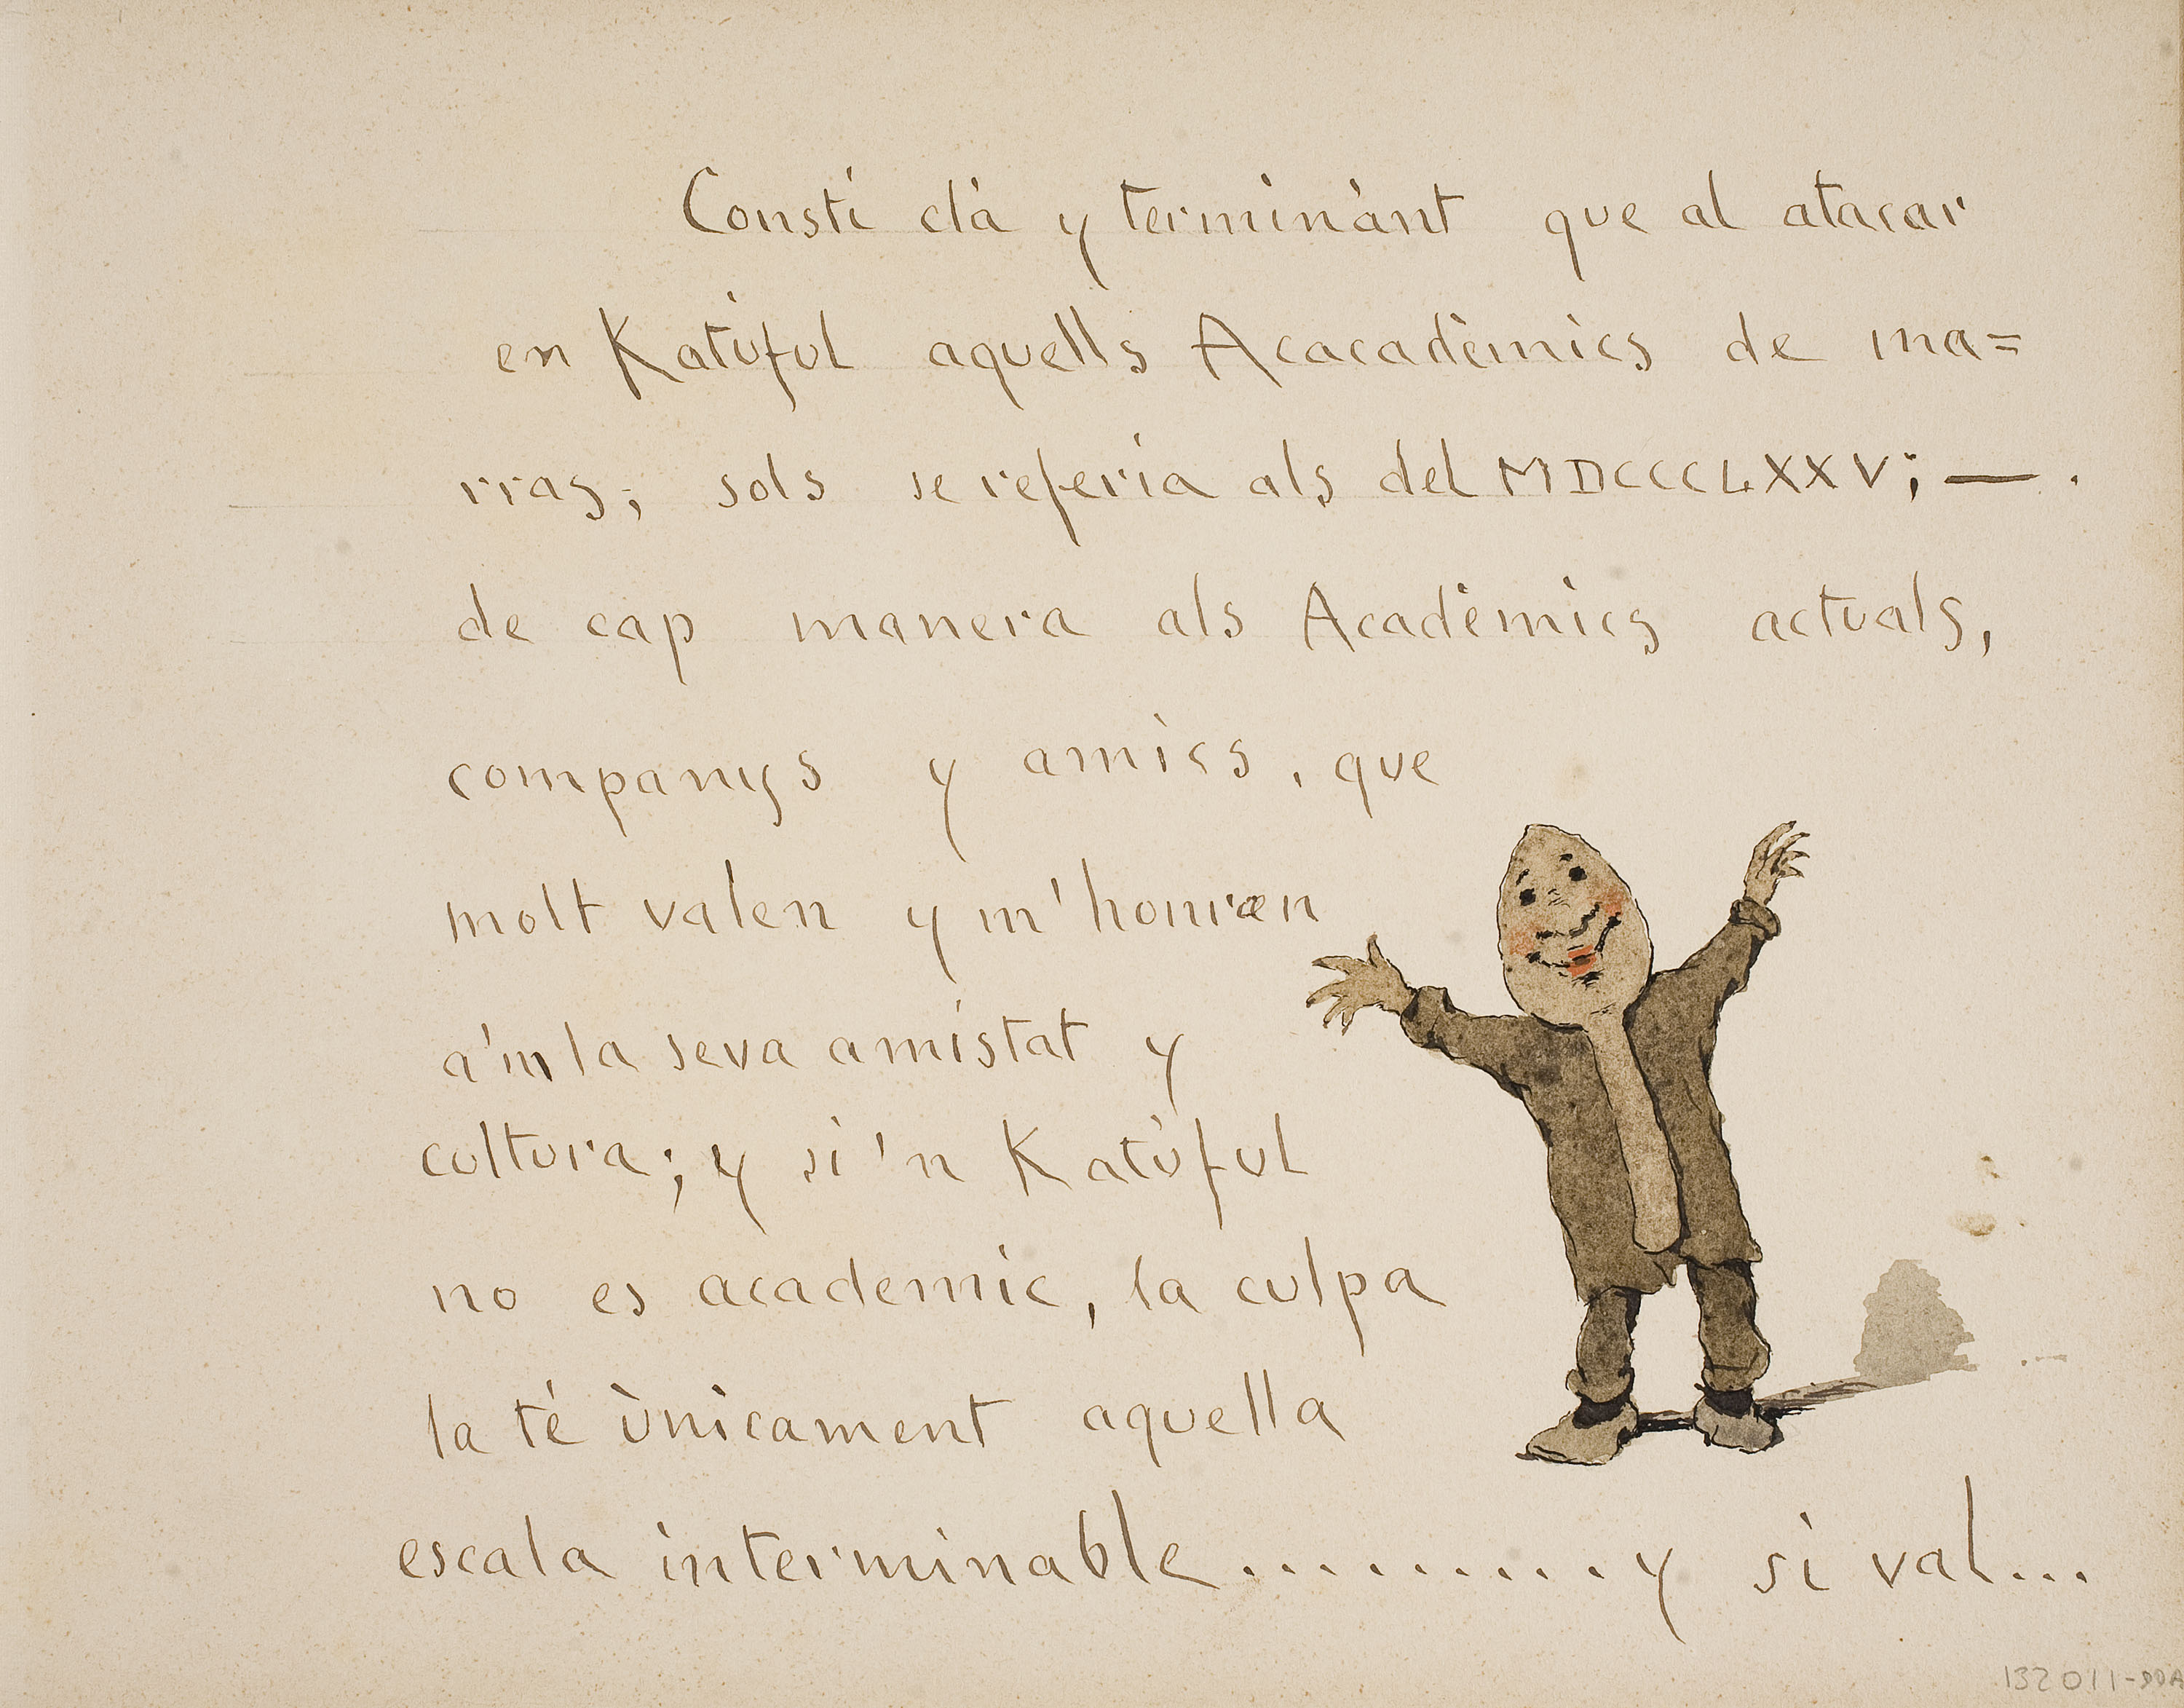 Consti clá y terminánt que al atacar
en Katúful aquells Acacadèmics de ma=
rras; sols se referia als del MDCCCLXXV; — .
de cap manera als Acadèmics actuals,
companys y amics, que
molt valen y m'honran
a'm la seva amistat y
cultura; y si 'n Katúful
no es academic, la culpa
la té ùnicament aquella
escala interminable.......... y si val...
132011-DDA